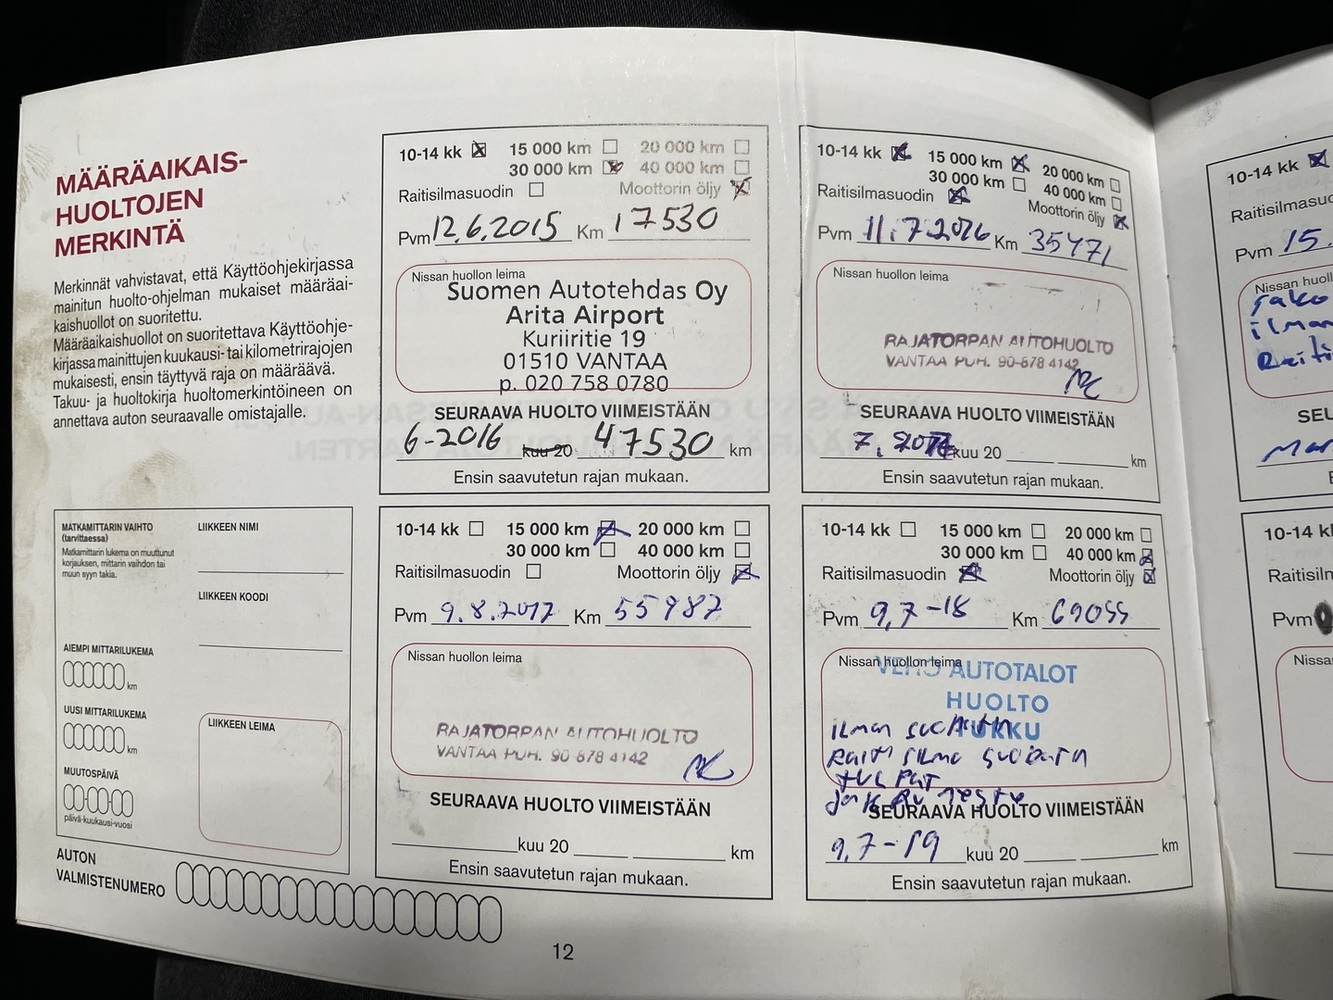 MÄÄRÄAIKAIS-
HUOLTOJEN
MERKINTÄ
Merkinnät vahvistavat, että Käyttöohjekirjassa
mainitun huolto-ohjelman mukaiset määräai-
kaishuollot on suoritettu.
Määräaikaishuollot on suoritettava Käyttöohje-
kirjassa mainittujen kuukausi- tai kilometrirajojen
mukaisesti, ensin täyttyvä raja on määräävä.
Takuu- ja huoltokirja huoltomerkintöineen on
annettava auton seuraavalle omistajalle.
10-14 kk 15 000 km 20 000 km
30 000 km 40 000 km
Raitisilmasuodin Moottorin öljy
Pvm 12.6.2015 Km 17530
Nissan huollon leima
Suomen Autotehdas Oy
Arita Airport
Kuriiritie 19
01510 VANTAA
p. 020 758 0780
SEURAAVA HUOLTO VIIMEISTÄÄN
6-2016 kuu 20 47530 km
Ensin saavutetun rajan mukaan.
10-14 kk 15 000 km 20 000 km
30 000 km 40 000 km
Raitisilmasuodin Moottorin öljy
Pvm 11.7.2016 Km 35471
Nissan huollon leima
RAJATORPAN AUTOHUOLTO
VANTAA PUH. 90-878 4142
SEURAAVA HUOLTO VIIMEISTÄÄN
7. kuu 20 km
Ensin saavutetun rajan mukaan.
10-14 kk
Pvm 15.
ilman
MATKAMITTARIN VAIHTO
(tarvittaessa)
Matkamittarin lukema on muuttunut
korjauksen, mittarin vaihdon tai
muun syyn takia.
LIIKKEEN NIMI
LIIKKEEN KOODI
AIEMPI MITTARILUKEMA
km
UUSI MITTARILUKEMA
km
MUUTOSPÄIVÄ
päivä-kuukausi-vuosi
LIIKKEEN LEIMA
AUTON
VALMISTENUMERO
10-14 kk 15 000 km 20 000 km
30 000 km 40 000 km
Raitisilmasuodin Moottorin öljy
Pvm 9.8.2017 Km 55987
Nissan huollon leima
RAJATORPAN AUTOHUOLTO
VANTAA PUH. 90 878 4142
SEURAAVA HUOLTO VIIMEISTÄÄN
kuu 20 km
Ensin saavutetun rajan mukaan.
10-14 kk 15 000 km 20 000 km
30 000 km 40 000 km
Raitisilmasuodin Moottorin öljy
Pvm 9,7-18 Km 69055
Nissan huollon leima
VEHO AUTOTALOT
HUOLTO
ilman
SEURAAVA HUOLTO VIIMEISTÄÄN
9.7-19 kuu 20 km
Ensin saavutetun rajan mukaan.
Pvm
12